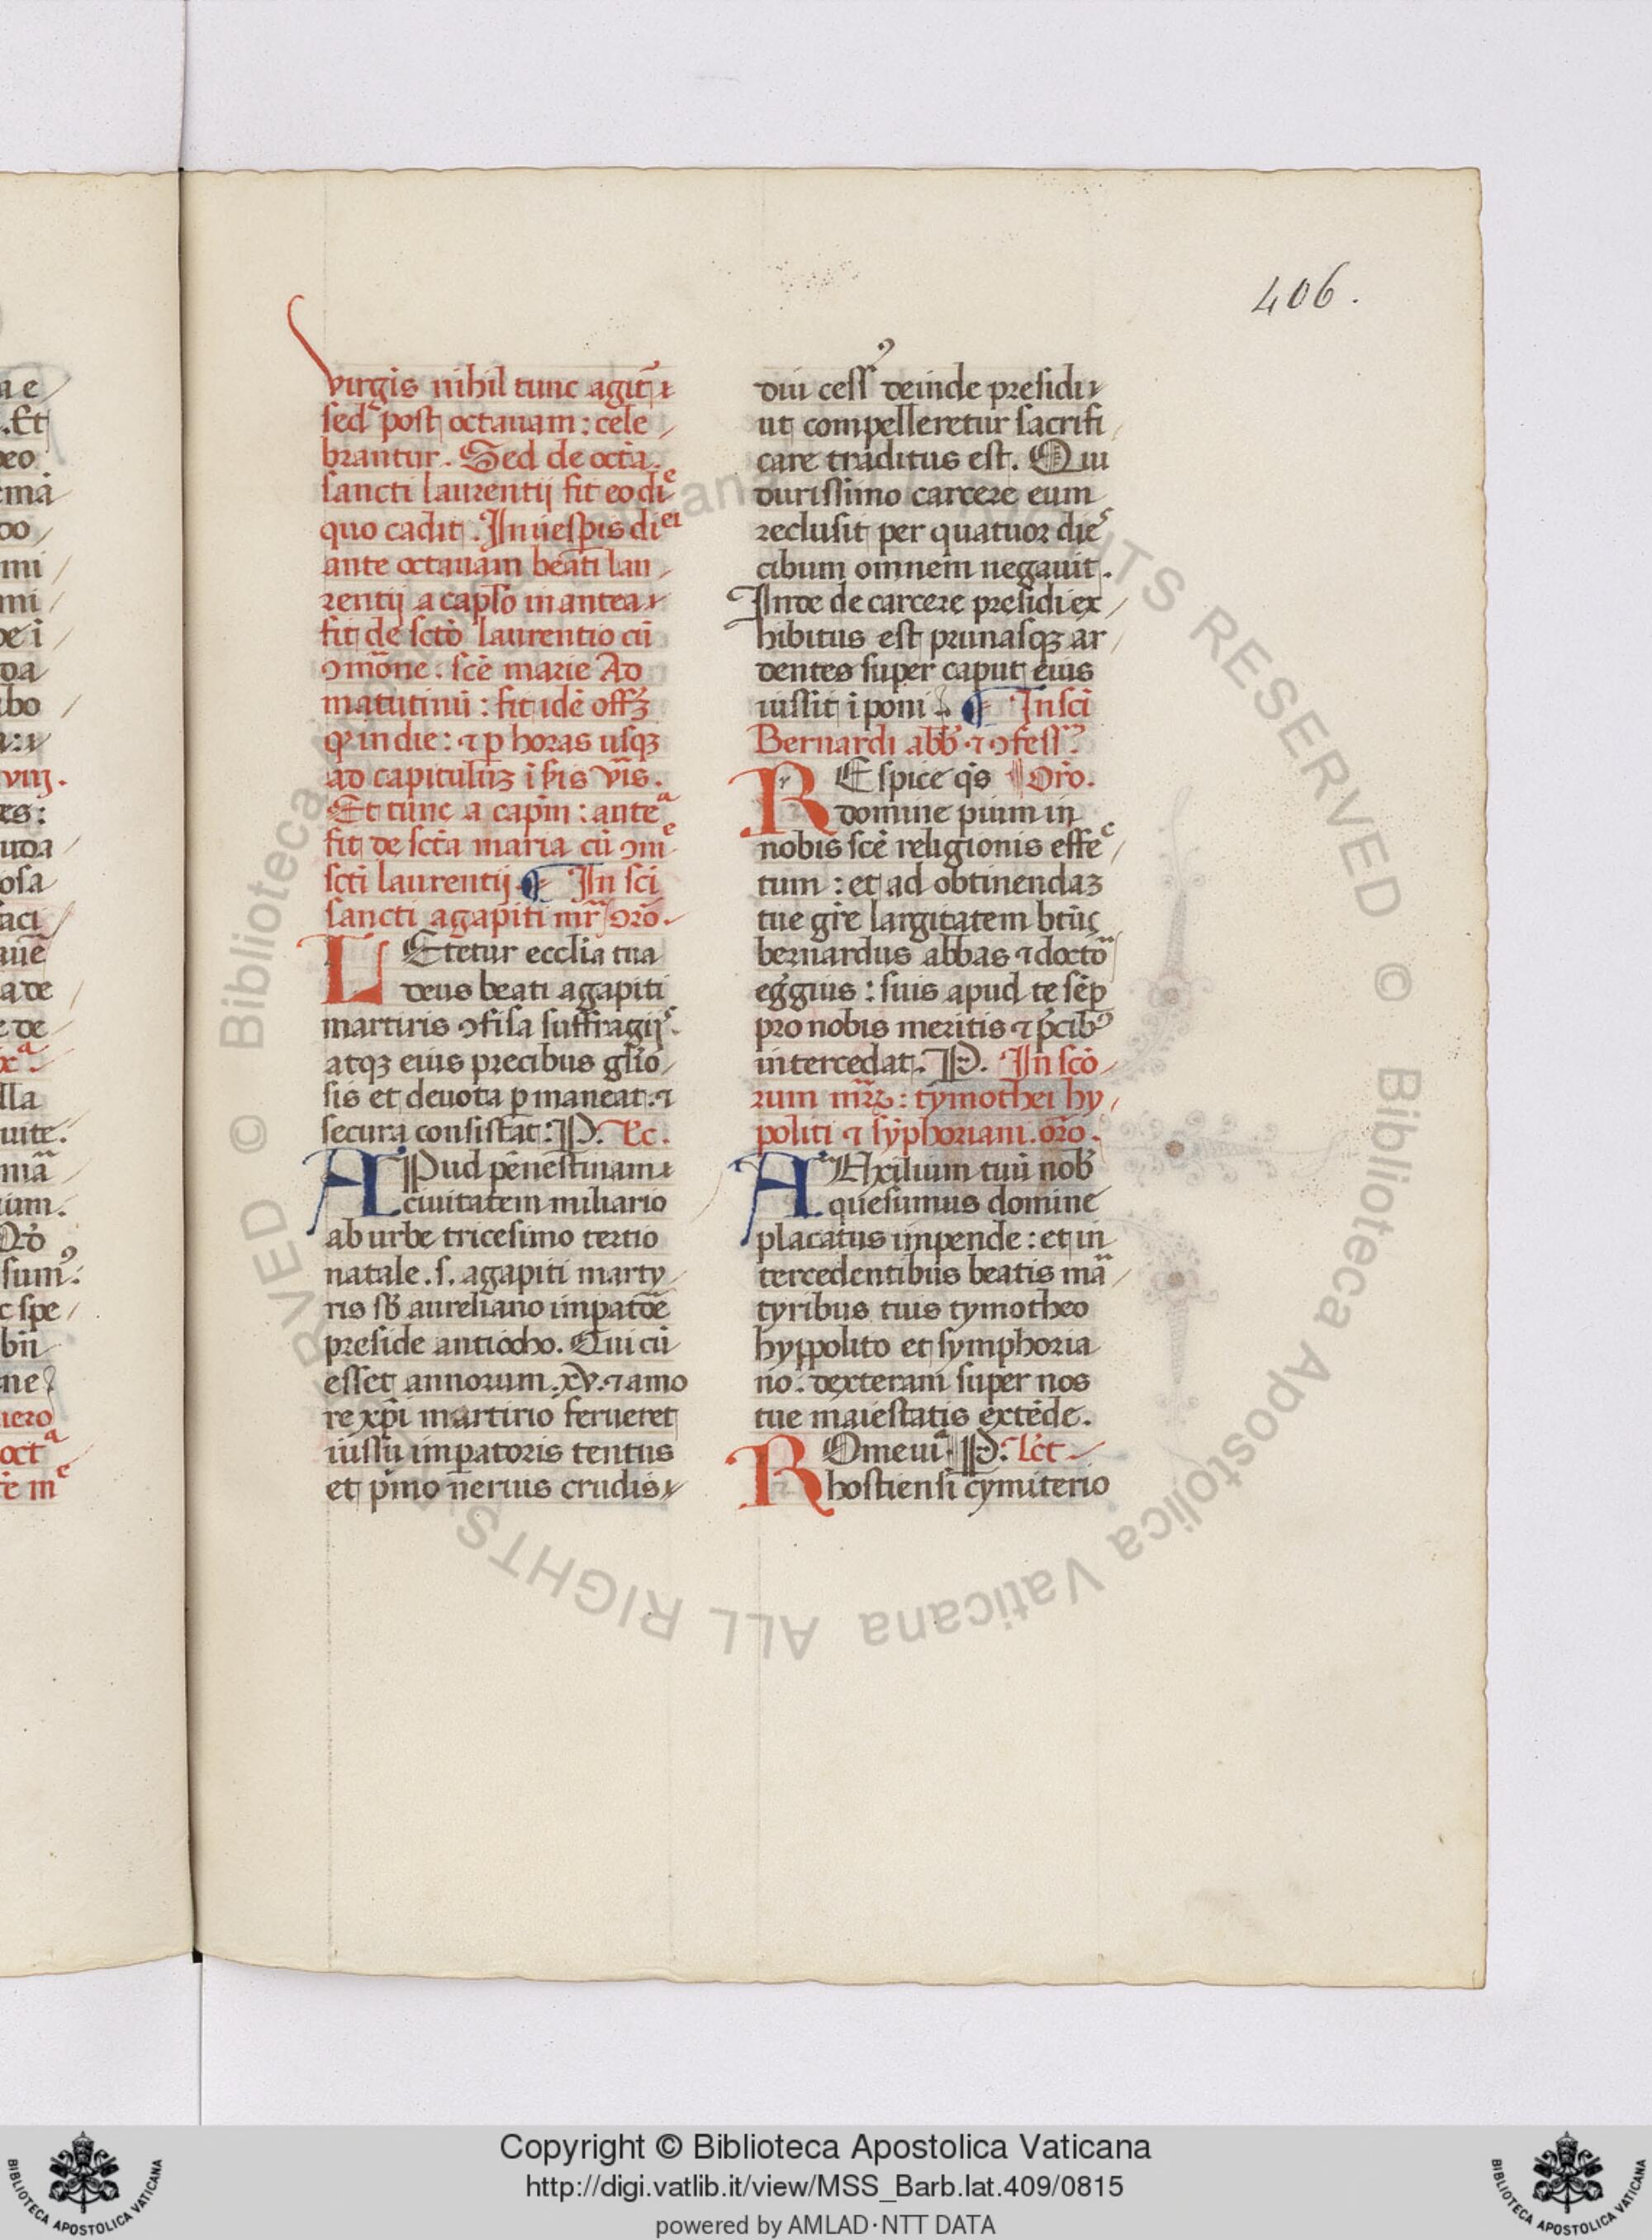 406.
virgis nihil tunc agit̃
sed post octauam : cele
brantur. Sed de octa.
sancti laurentij fit eo diͤ
quo cadit. In uesp̲is diei
ante octauam beati lau
rentij a cap̲lo in antea
fit de sctō laurentio cū
ↄmōne. scē marie Ad
matutinū : fit idē offꝫ
qͥ in die : ⁊ p̲ horas usqꝫ
ad capitulūꝫ
Et tunc a cap̄m : anteᵃ
fit de sctā maria cū ↄmͤ
scti laurentij. In sci
sancti agapiti mr̃ orō.
LEtetur ecclīa tua
deus beati agapiti
martiris ↄfisa suffragijˢ.
atqꝫ eius precibus glīo
sis et deuota p̲maneat. ⁊
secura consistat : P. Lc.
APud pēnestinam
ciuitatem miliario
ab urbe tricesimo tertio
natale. s. agapiti marty
ris sb̄ aureliano imp̲atōe
preside antiocho. Qui cū
esset annorum. xv. ⁊ amo
re xp̄i martirio ferueret
iussu imp̲atoris tentus
et pͥmo neruis crudis
diu cessꝰ deinde presidi
ut compelleretur sacrifi
care traditus est. Qui
durissimo carcere eum
reclusit per quatuor dieˢ
cibum omnem negauit.
Inde de carcere presidi ex
hibitus est prunasqꝫ ar
dentes super caput eius
iussit īponi. In sci
Bernardi abb̄. ⁊ ↄfess.
REspice qs̄ Orō.
domine pium in
nobis scē religionis effeᶜ
tum : et ad obtinendaꝫ
tue gr̄e largitatem btūs
bernardus abbas ⁊ docto
egͤgius : suis apud te sēp̲
pro nobis meritis ⁊ p̄cibꝰ
intercedat. P. In scō
rum mr̄ꝝ : tymothei hy
politi ⁊ sȳphoriani. orō.
AUxilium tuū nob̄
quesumus domine
placatus impende : et in
tercedentibus beatis mā
tyribus tuis tymotheo
hyppolito et symphoria
no : dexteram super nos
tue maiestatis extēde.
ROme uiᵃ P. Lc̄t
hostiensi cymiterio
Copyright © Biblioteca Apostolica Vaticana
http://digi.vatlib.it/view/MSS_Barb.lat.409/0815
powered by AMLAD·NTT DATA